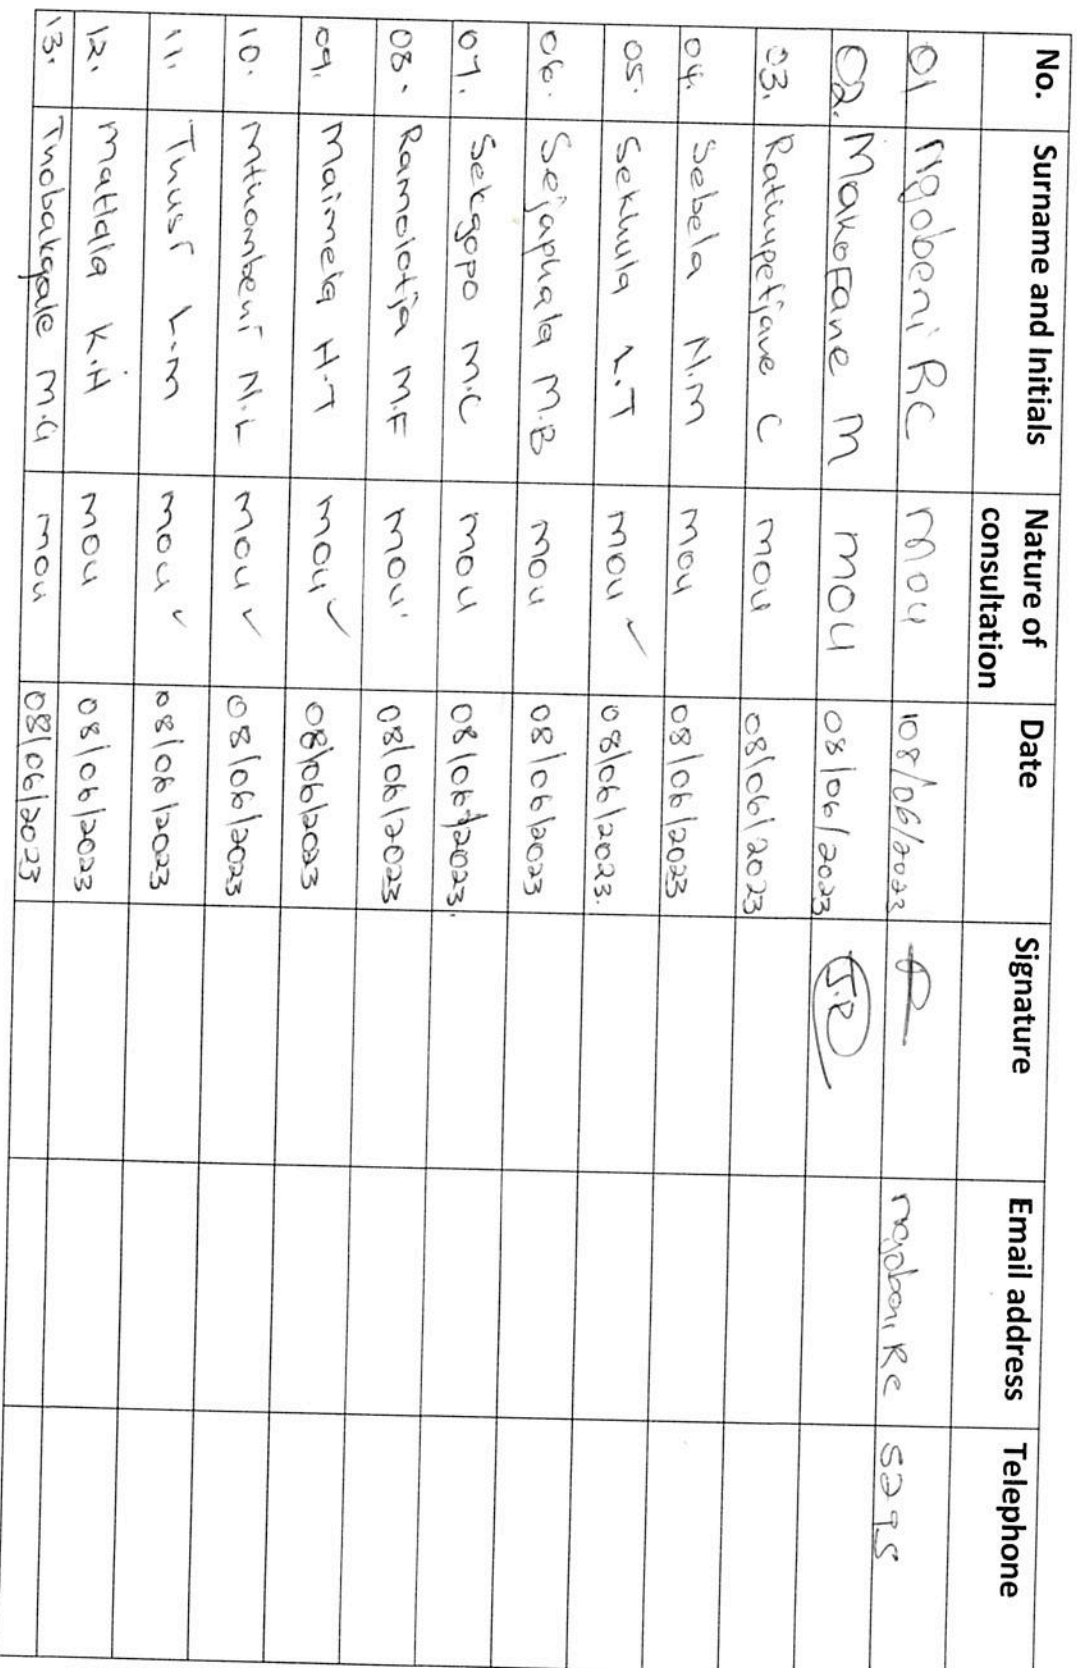 No. Surname and Initials Nature of consultation Date Signature Email address Telephone
01 Ngobeni RC mou 08/06/2023 ngobeni RC 5295
02. Makofane M mou 08/06/2023 J.R
03. Rathupetjane C mou 08/06/2023
04. Sebela N.M mou 08/06/2023
05. Sekhula L.T mou ✓ 08/06/2023.
06. Sejaphala M.B mou 08/06/2023
07. Sekgopo M.C mou 08/06/2023.
08. Ramolotja M.F mou 08/06/2023
09. Maimela H.T mou ✓ 08/06/2023
10. Mthombeni N.L mou ✓ 08/06/2023
11. Thusi L.M mou ✓ 08/06/2023
12. Matlala K.H mou 08/06/2023
13. Thobakgale M.G mou 08/06/2023